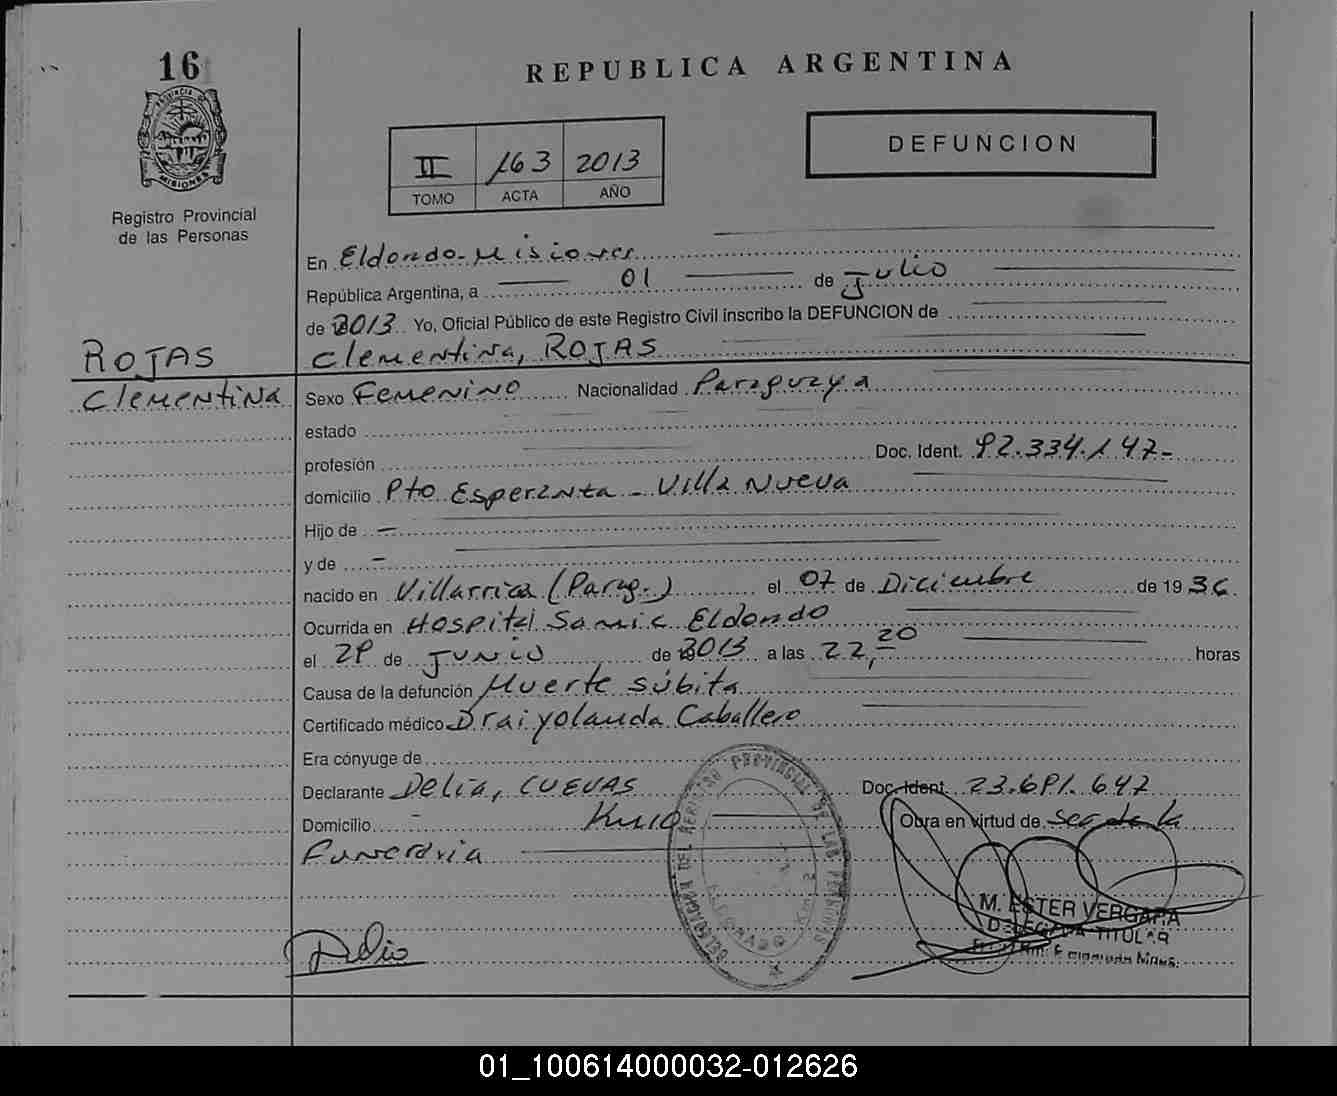 16
PROVINCIA DE
MISIONES
Registro Provincial
de las Personas
REPUBLICA ARGENTINA
II 163 2013
TOMO ACTA AÑO
DEFUNCION
En Eldorado-Misiones
República Argentina, a 01 de Julio
de 2013 Yo, Oficial Público de este Registro Civil inscribo la DEFUNCION de
ROJAS
Clementina, ROJAS
Clementina
Sexo Femenino Nacionalidad Paraguaya
estado
profesión Doc. Ident. 92.334.147-
domicilio Pto Esperanza - Villa Nueva
Hijo de -
y de -
nacido en Villarrica (Parag.) el 07 de Diciembre de 1936
Ocurrida en Hospital Samic Eldorado
el 29 de Junio de 2013 a las 22,20 horas
Causa de la defunción Muerte súbita
Certificado médico Dra; Yolanda Caballero
Era cónyuge de
Declarante Delia, CUEVAS Doc. Ident. 23.691.647
Domicilio - Km 10 Obra en virtud de Ser de la
Funeraria
DELEGACION DEL REGISTRO PROVINCIAL DE LAS PERSONAS
ELDORADO Km 2
M. ESTER VERGARA
DELEGADA TITULAR
Delia
01_100614000032-012626